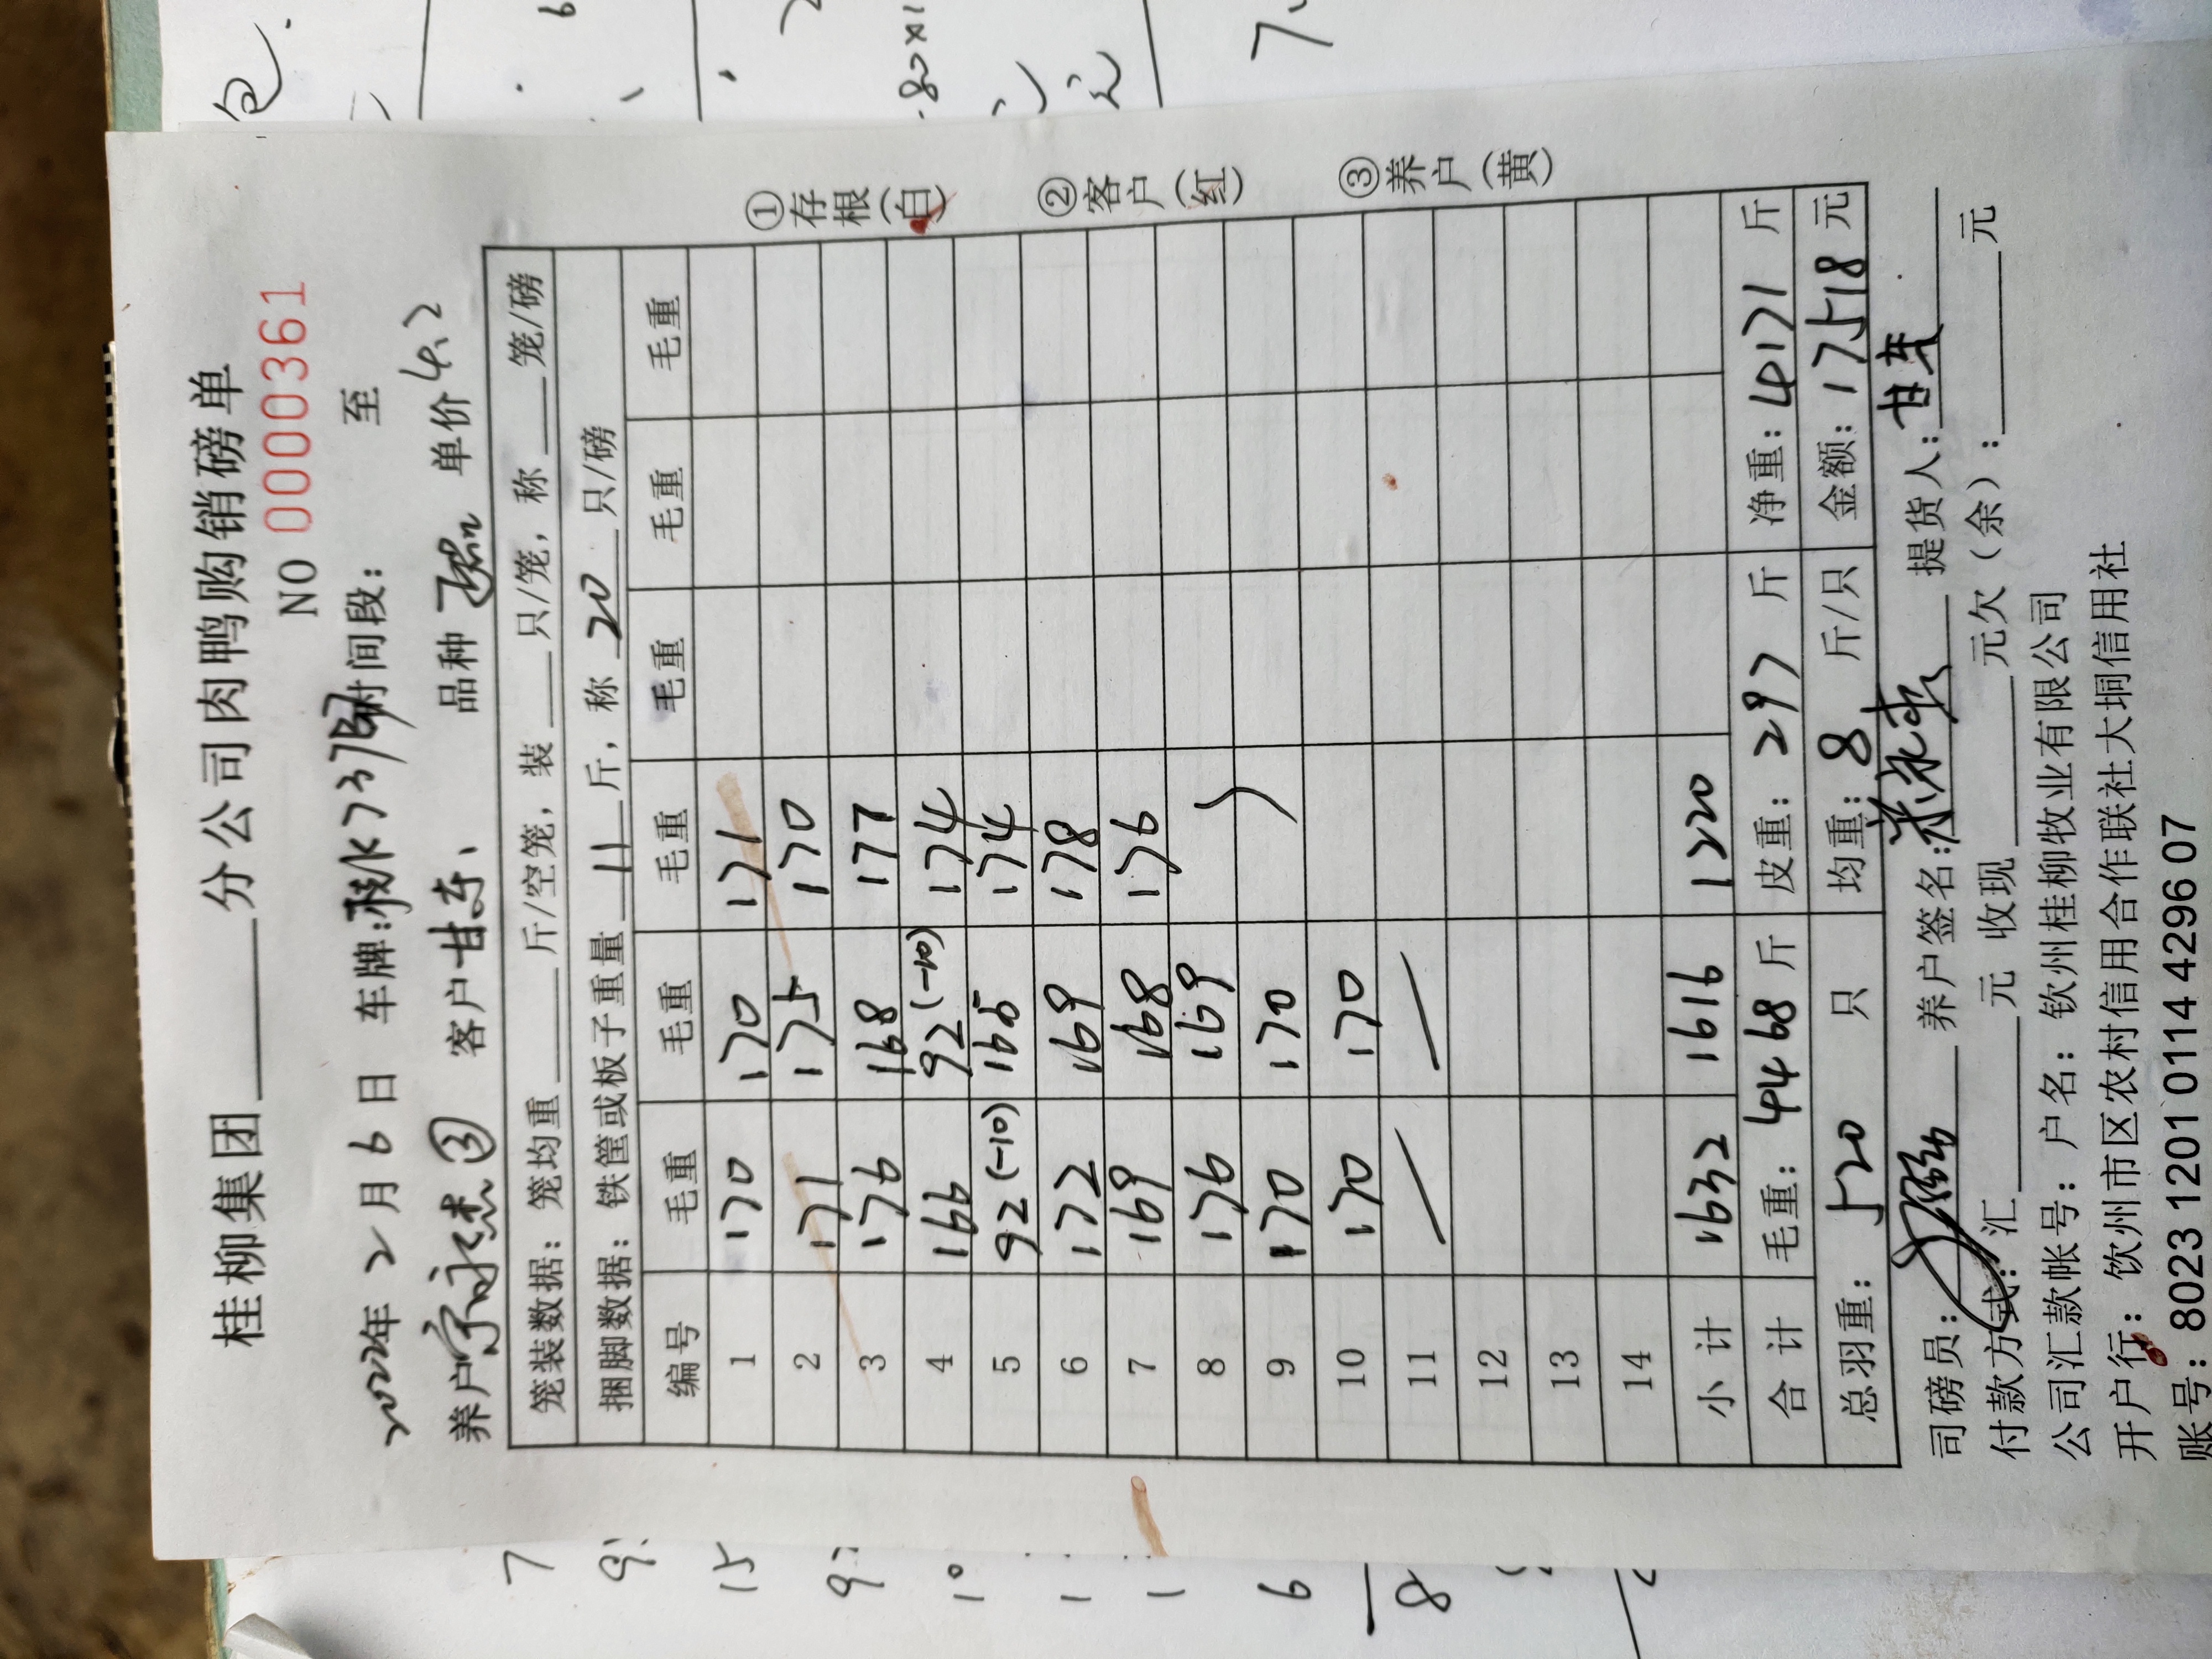 桂柳集团 分公司肉鸭购销磅单
NO 0000361
2022年 2 月 6 日 车牌: 时间段: 至
养户 ③ 客户 甘东、 品种 单价 4.2
笼装数据: 笼均重 斤/空笼, 装 只/笼, 称 笼/磅
捆脚数据: 铁筐或板子重量 11 斤, 称 20 只/磅
编号 毛重 毛重 毛重 毛重 毛重 毛重
1 170 170 171
2 171 175 170
3 176 168 177
4 166 92(-10) 174
5 92(-10) 165 174
6 172 169 178
7 169 168 176
8 176 169
9 170 170
10 170 170
11
12
13
14
小计 1632 1616 1220
合计 毛重: 4468 斤 皮重: 297 斤 净重: 4171 斤
总羽重: 520 只 均重: 8 斤/只 金额: 17518 元
司磅员: 养户签名: 提货人: 甘东
付款方式: 汇 元 收现 元欠(余): 元
公司汇款帐号: 户名: 钦州桂柳牧业有限公司
开户行: 钦州市区农村信用合作联社大垌信用社
账号: 8023 1201 0114 4296 07
①存根(白)
②客户(红)
③养户(黄)